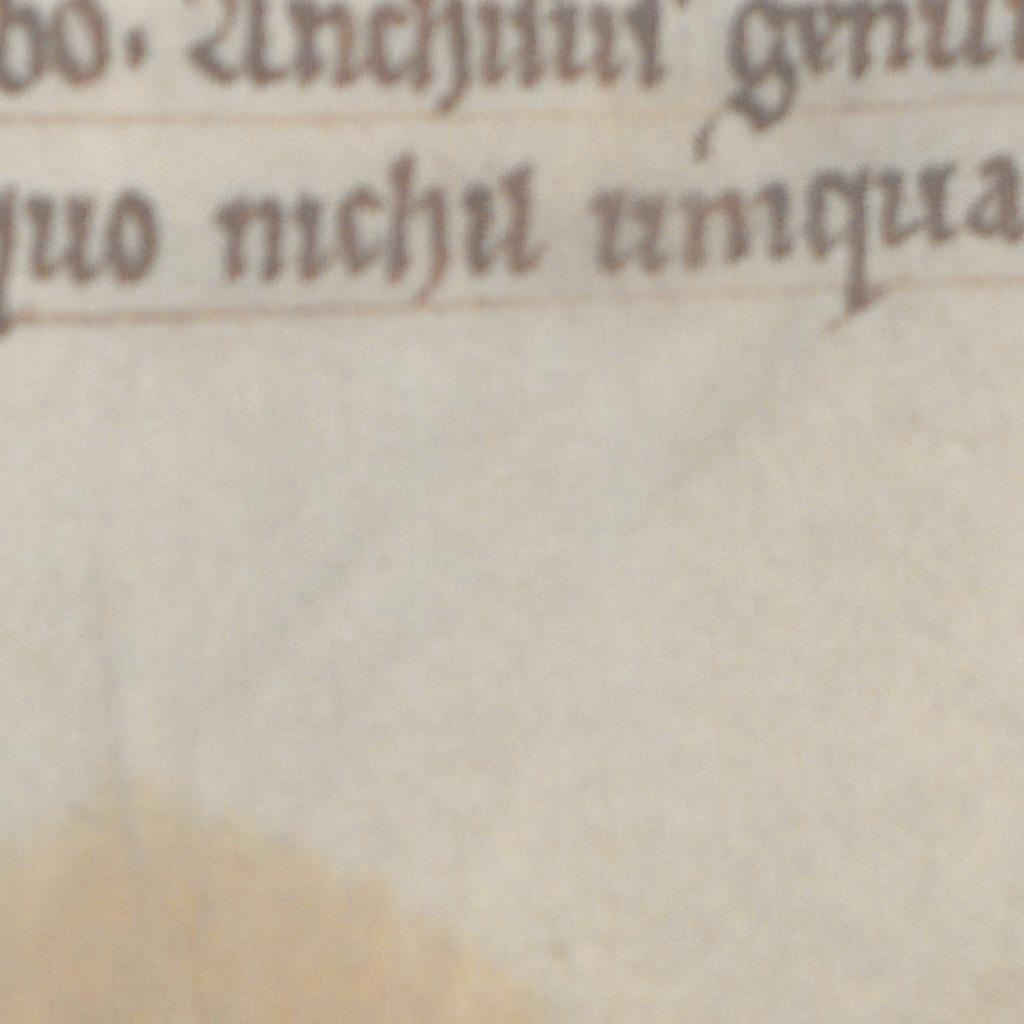 bo. Anchiuus genui
quo nichil umqua